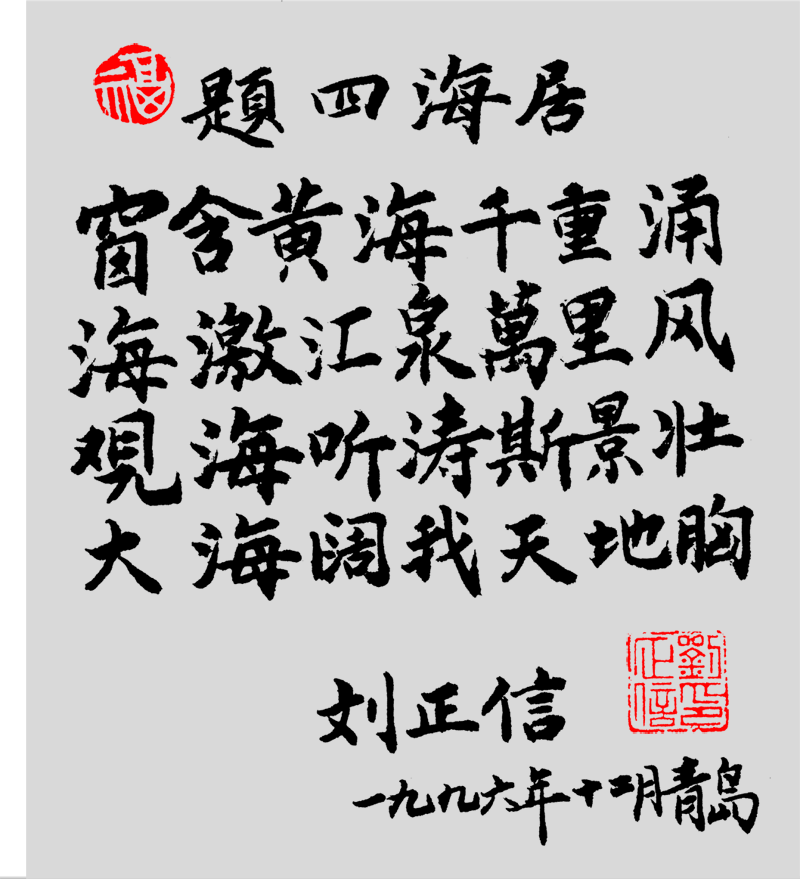 福 題四海居
窗含黄海千重涌
海激江泉萬里风
观海听涛斯景壮
大海阔我天地胸
刘正信
劉正信印
一九九六年十二月青岛